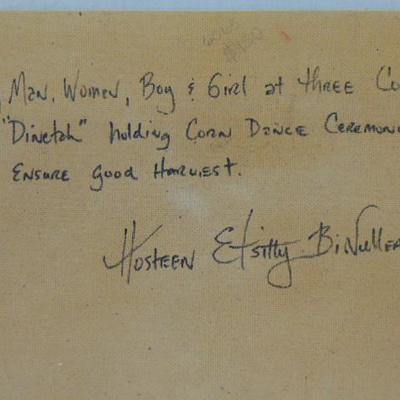 GOLD
$150
, Man, Women, Boy & Girl at three Co
"Dinetah" holding Corn Dance Ceremon
Ensure good Harvest.
Hosteen Etsitty BiNullea